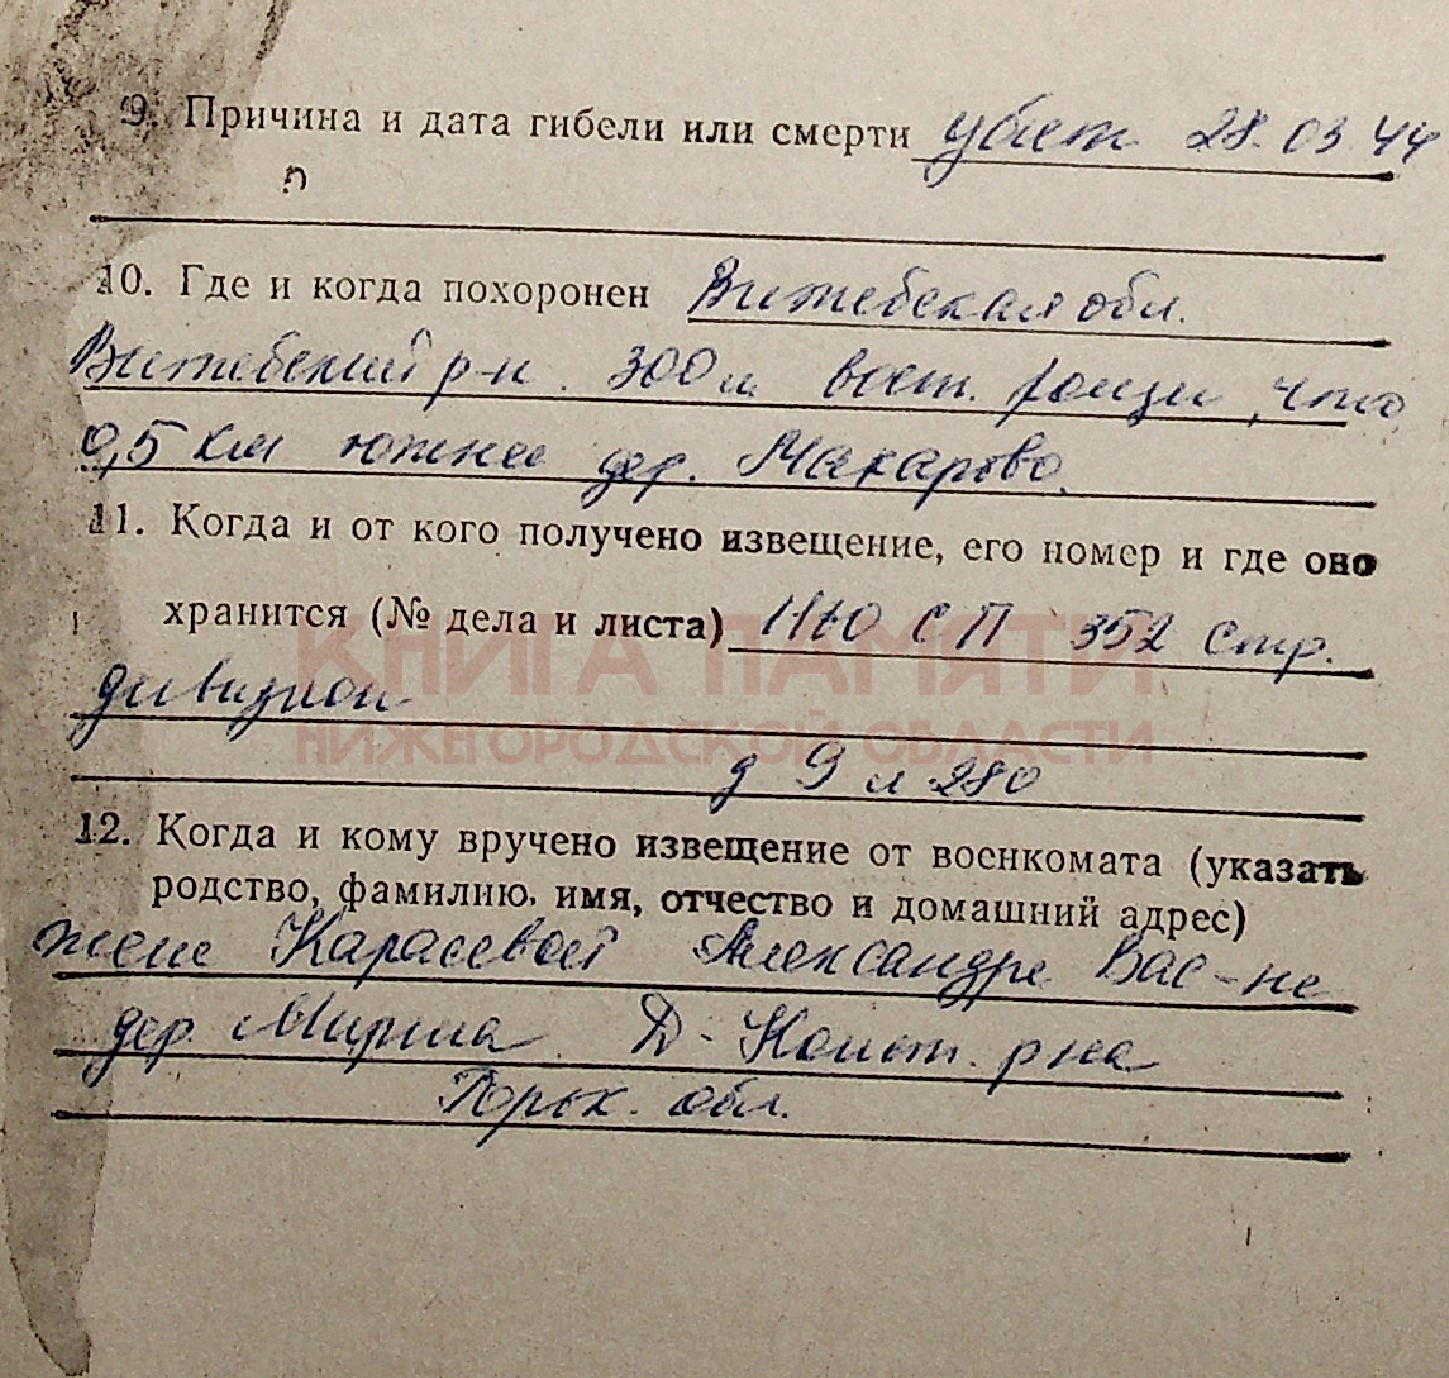 9. Причина и дата гибели или смерти убит 28.03.44
10. Где и когда похоронен Витебская обл.
Витебский р-н. 300 м вост. рощи, что
0,5 км южнее дер. Макарово.
11. Когда и от кого получено извещение, его номер и где оно
хранится (№ дела и листа) 1160 СП 352 стр.
дивизион
д 9 л 280
КНИГА ПАМЯТИ
НИЖЕГОРОДСКОЙ ОБЛАСТИ
12. Когда и кому вручено извещение от военкомата (указать
родство, фамилию, имя, отчество и домашний адрес)
жене Карасевой Александре Вас-не
дер. Д-Конст. р-на
Горьк. обл.